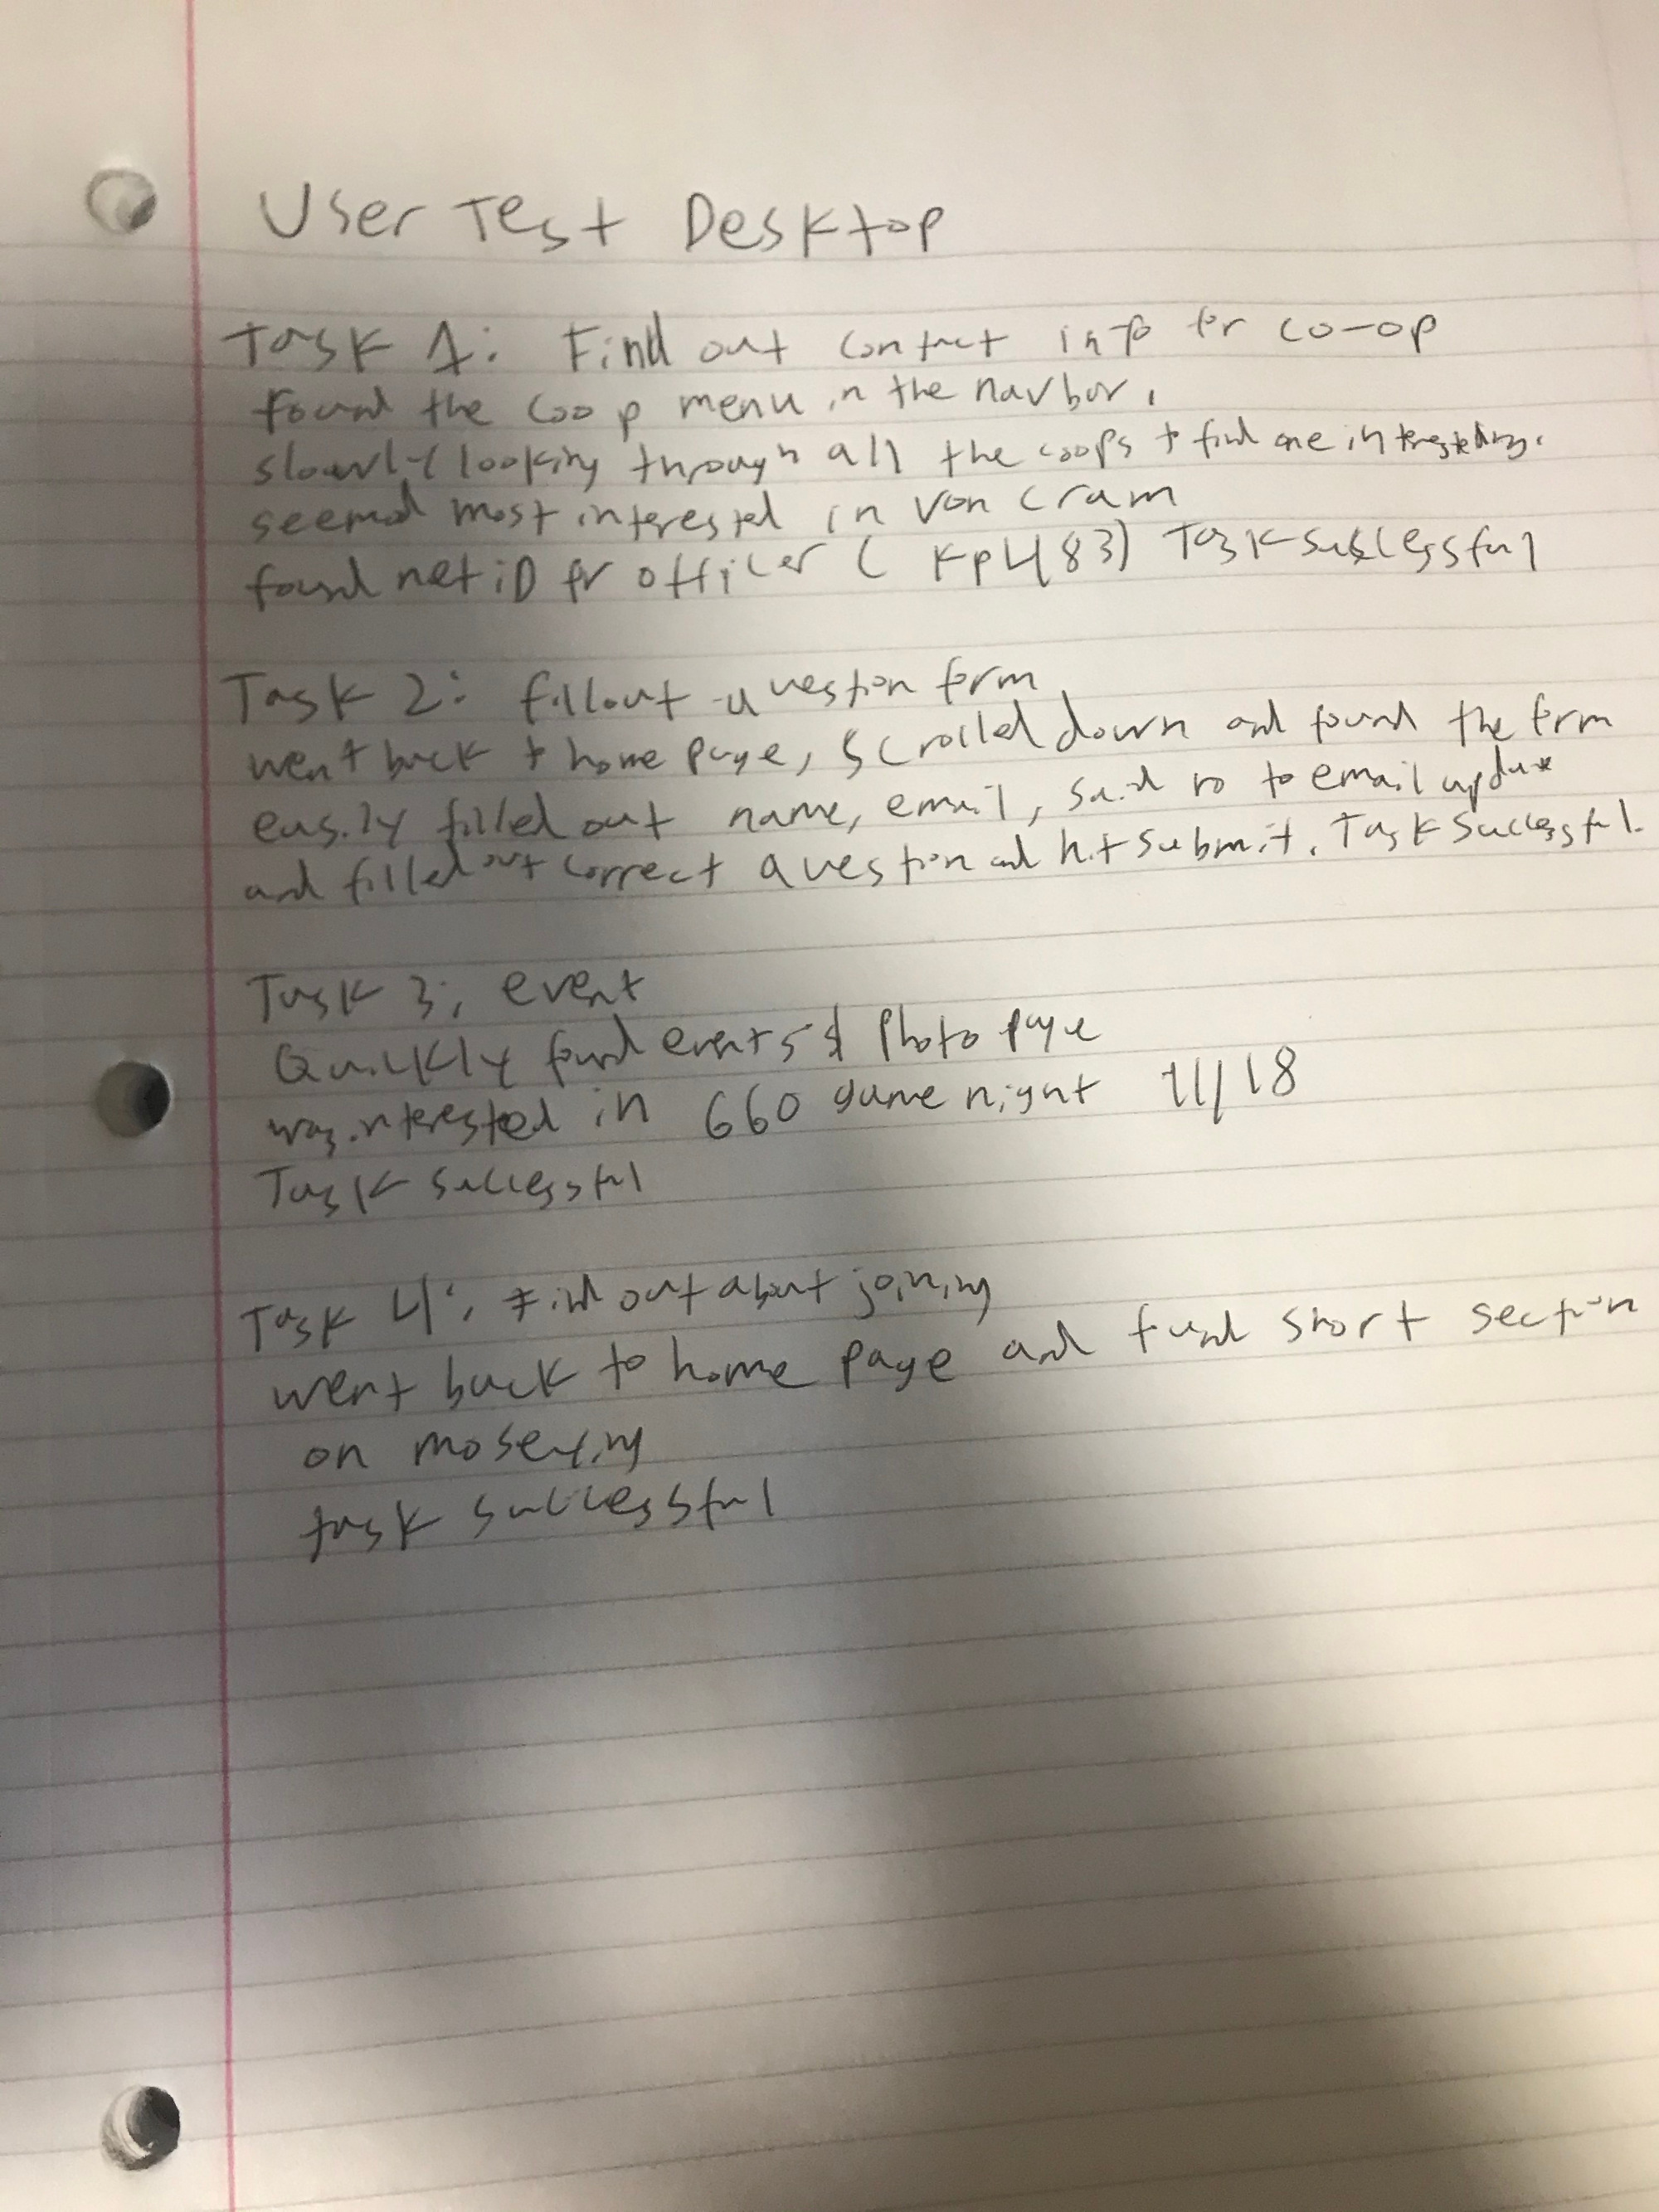 User Test Desktop
Task 1: Find out contact info for co-op
found the coop menu in the navbar.
slowly looking through all the coops to find one interesting.
seemed most interested in Von Cram
found netiD for officer (kp483) Task successful
Task 2: fillout question form
went back to home page, scrolled down and found the form
easily filled out name, email, said no to email update
and filled out correct question and hit submit. Task Successful.
Task 3: event
Quickly found events & photo page
was interested in 660 game night 11/18
Task successful
Task 4: Find out about joining
went back to home page and found short section
on moseying
task successful